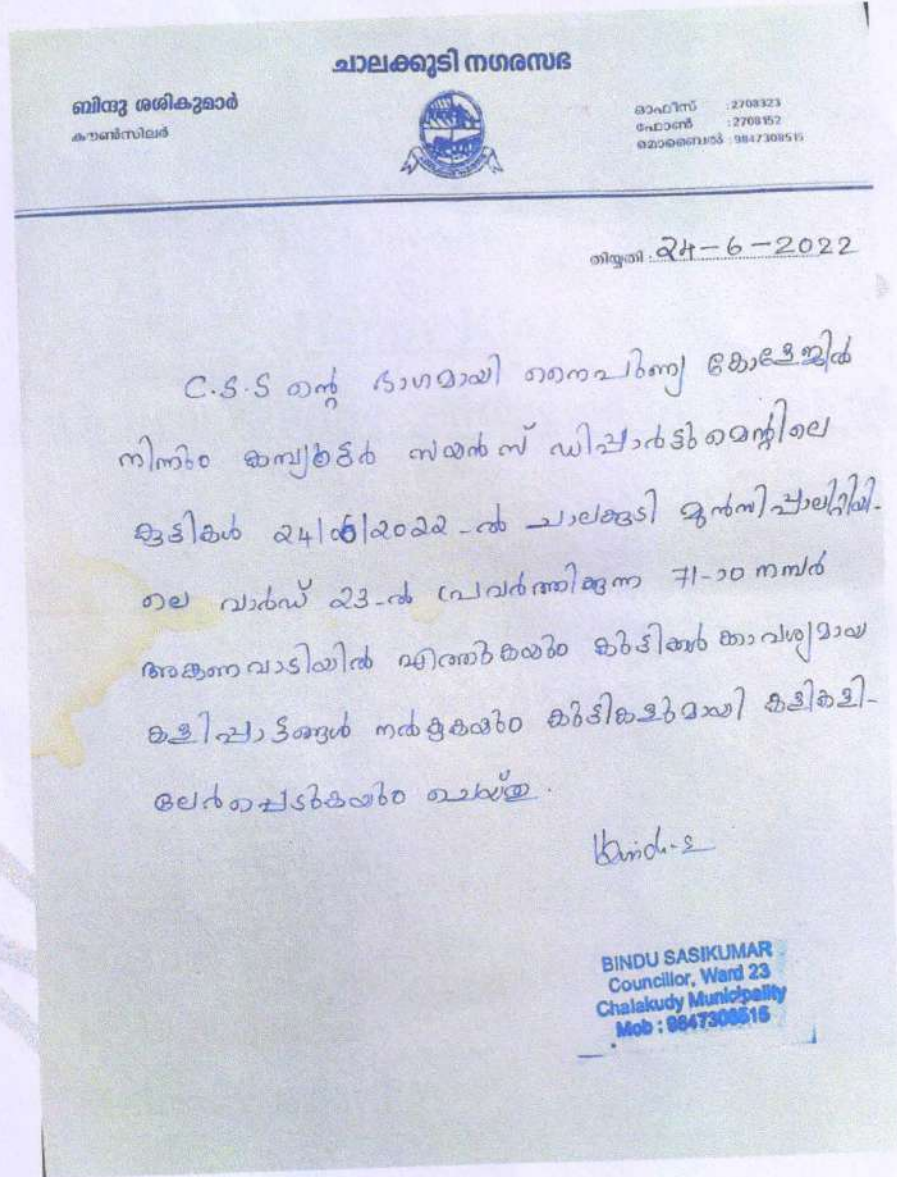 ചാലക്കുടി നഗരസഭ
ബിന്ദു ശശികുമാർ
കൗൺസിലർ
ഓഫീസ് : 2708323
ഫോൺ : 2708152
മൊബൈൽ : 9847308515
തിയ്യതി : 24-6-2022
C.S.S ന്റെ ഭാഗമായി നൈപുണ്യ കോളേജിൽ
നിന്നും കമ്പ്യൂട്ടർ സയൻസ് ഡിപ്പാർട്ടുമെന്റിലെ
കുട്ടികൾ 24/06/2022-ൽ ചാലക്കുടി മുൻസിപ്പാലിറ്റിയി-
ലെ വാർഡ് 23-ൽ പ്രവർത്തിക്കുന്ന 71-ാം നമ്പർ
അങ്കണവാടിയിൽ എത്തുകയും കുട്ടികൾക്കാവശ്യമായ
കളിപ്പാട്ടങ്ങൾ നൽകുകയും കുട്ടികളുമായി കളികളി-
ലേർപ്പെടുകയും ചെയ്തു.
BINDU SASIKUMAR
Councillor, Ward 23
Chalakudy Municipality
Mob : 9847308515